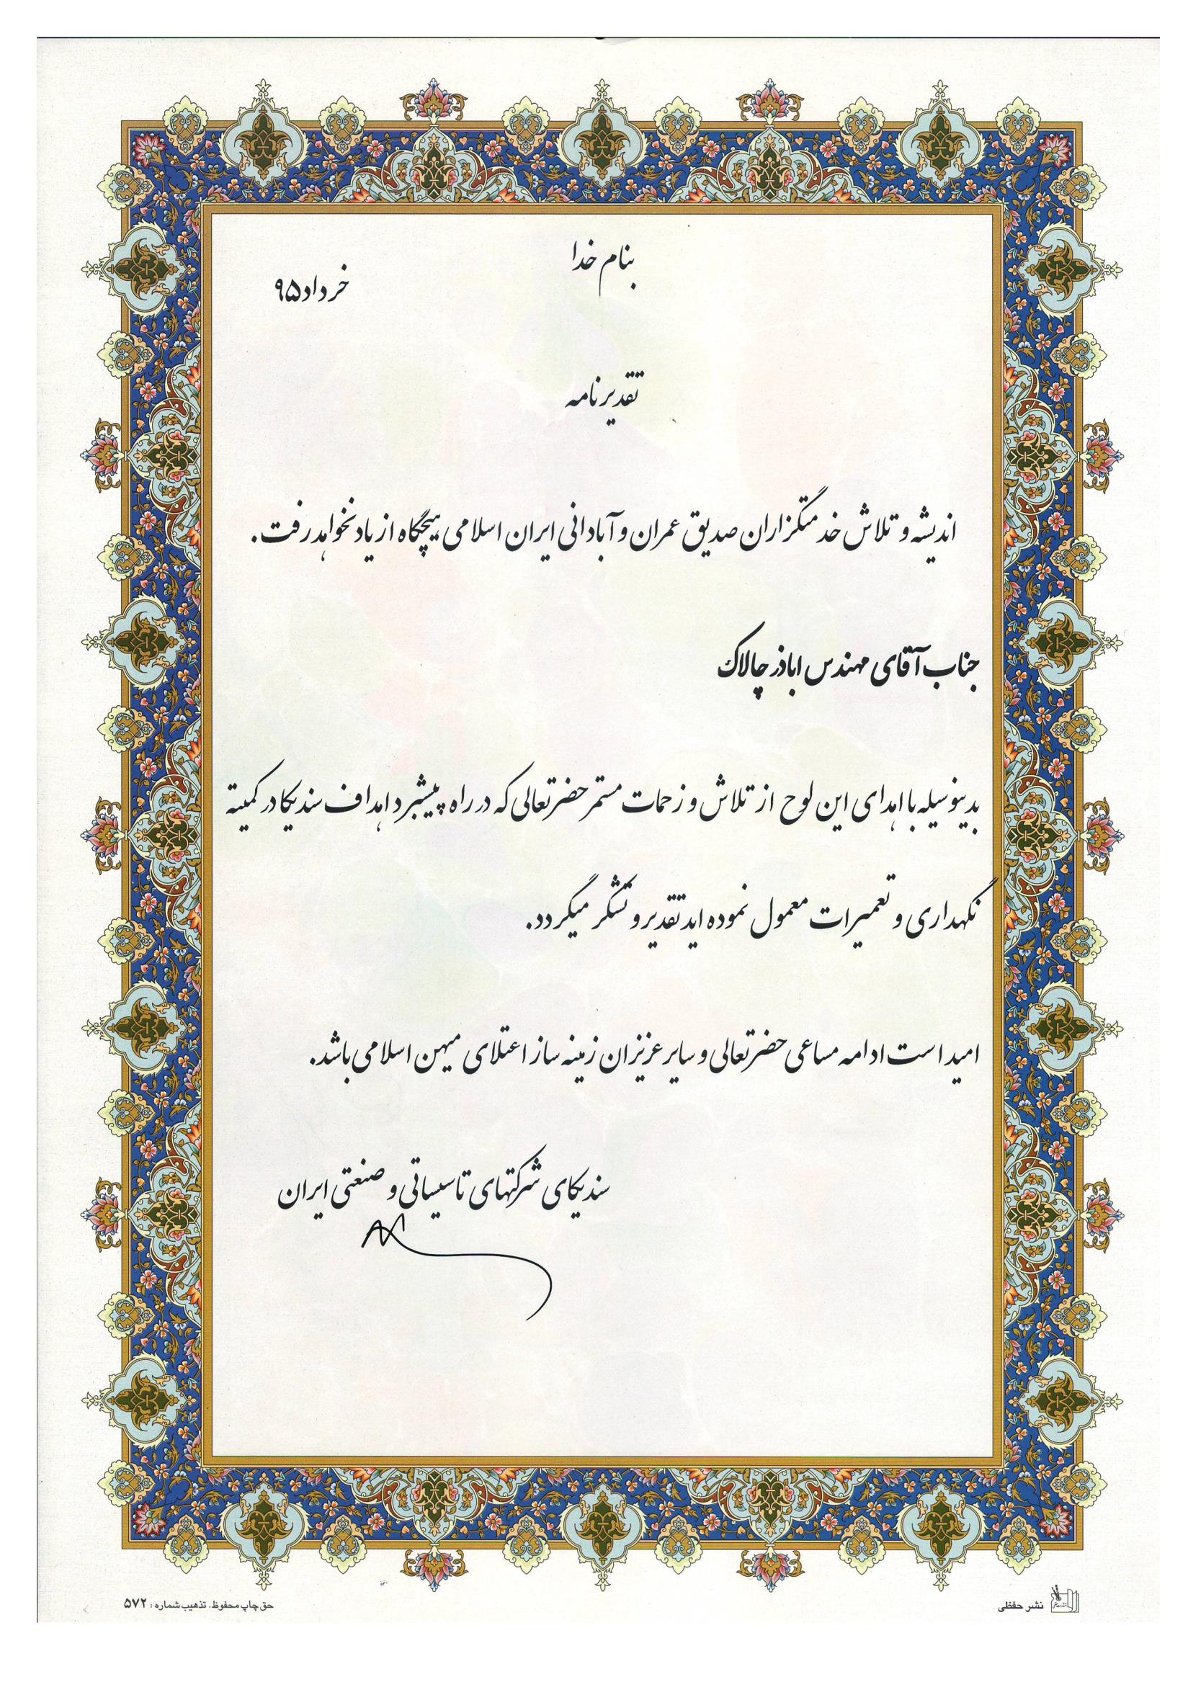 بنام خدا
خرداد ۹۵
تقدیرنامه
اندیشه و تلاش خدمتگزاران صدیق عمران و آبادانی ایران اسلامی هیچگاه از یاد نخواهد رفت.
جناب آقای مهندس اباذر چالاک
بدینوسیله با اهدای این لوح از تلاش و زحمات مستمر حضرتعالی که در راه پیشبرد اهداف سندیکا در کمیته
نگهداری و تعمیرات معمول نموده اید تقدیر و تشکر میگردد.
امید است ادامه مساعی حضرتعالی و سایر عزیزان زمینه ساز اعتلای میهن اسلامی باشد.
سندیکای شرکتهای تاسیساتی و صنعتی ایران
نشر حفظی
حق چاپ محفوظ. تذهیب شماره : ۵۷۲